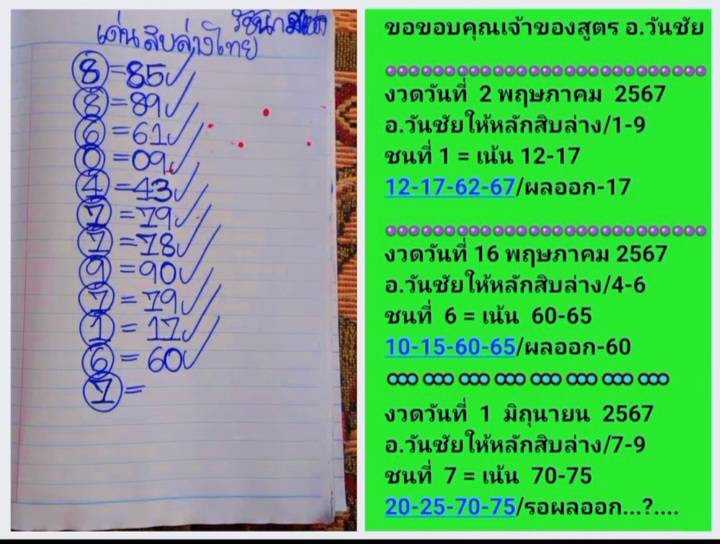 เด่นสิบล่างไทย
8 = 85
8 = 89
6 = 61
0 = 09
4 = 43
7 = 79
7 = 78
9 = 90
7 = 79
1 = 17
6 = 60
7 =
ขอขอบคุณเจ้าของสูตร อ.วันชัย
งวดวันที่ 2 พฤษภาคม 2567
อ.วันชัยให้หลักสิบล่าง/1-9
ชนที่ 1 = เน้น 12-17
12-17-62-67/ผลออก-17
งวดวันที่ 16 พฤษภาคม 2567
อ.วันชัยให้หลักสิบล่าง/4-6
ชนที่ 6 = เน้น 60-65
10-15-60-65/ผลออก-60
งวดวันที่ 1 มิถุนายน 2567
อ.วันชัยให้หลักสิบล่าง/7-9
ชนที่ 7 = เน้น 70-75
20-25-70-75/รอผลออก...?....